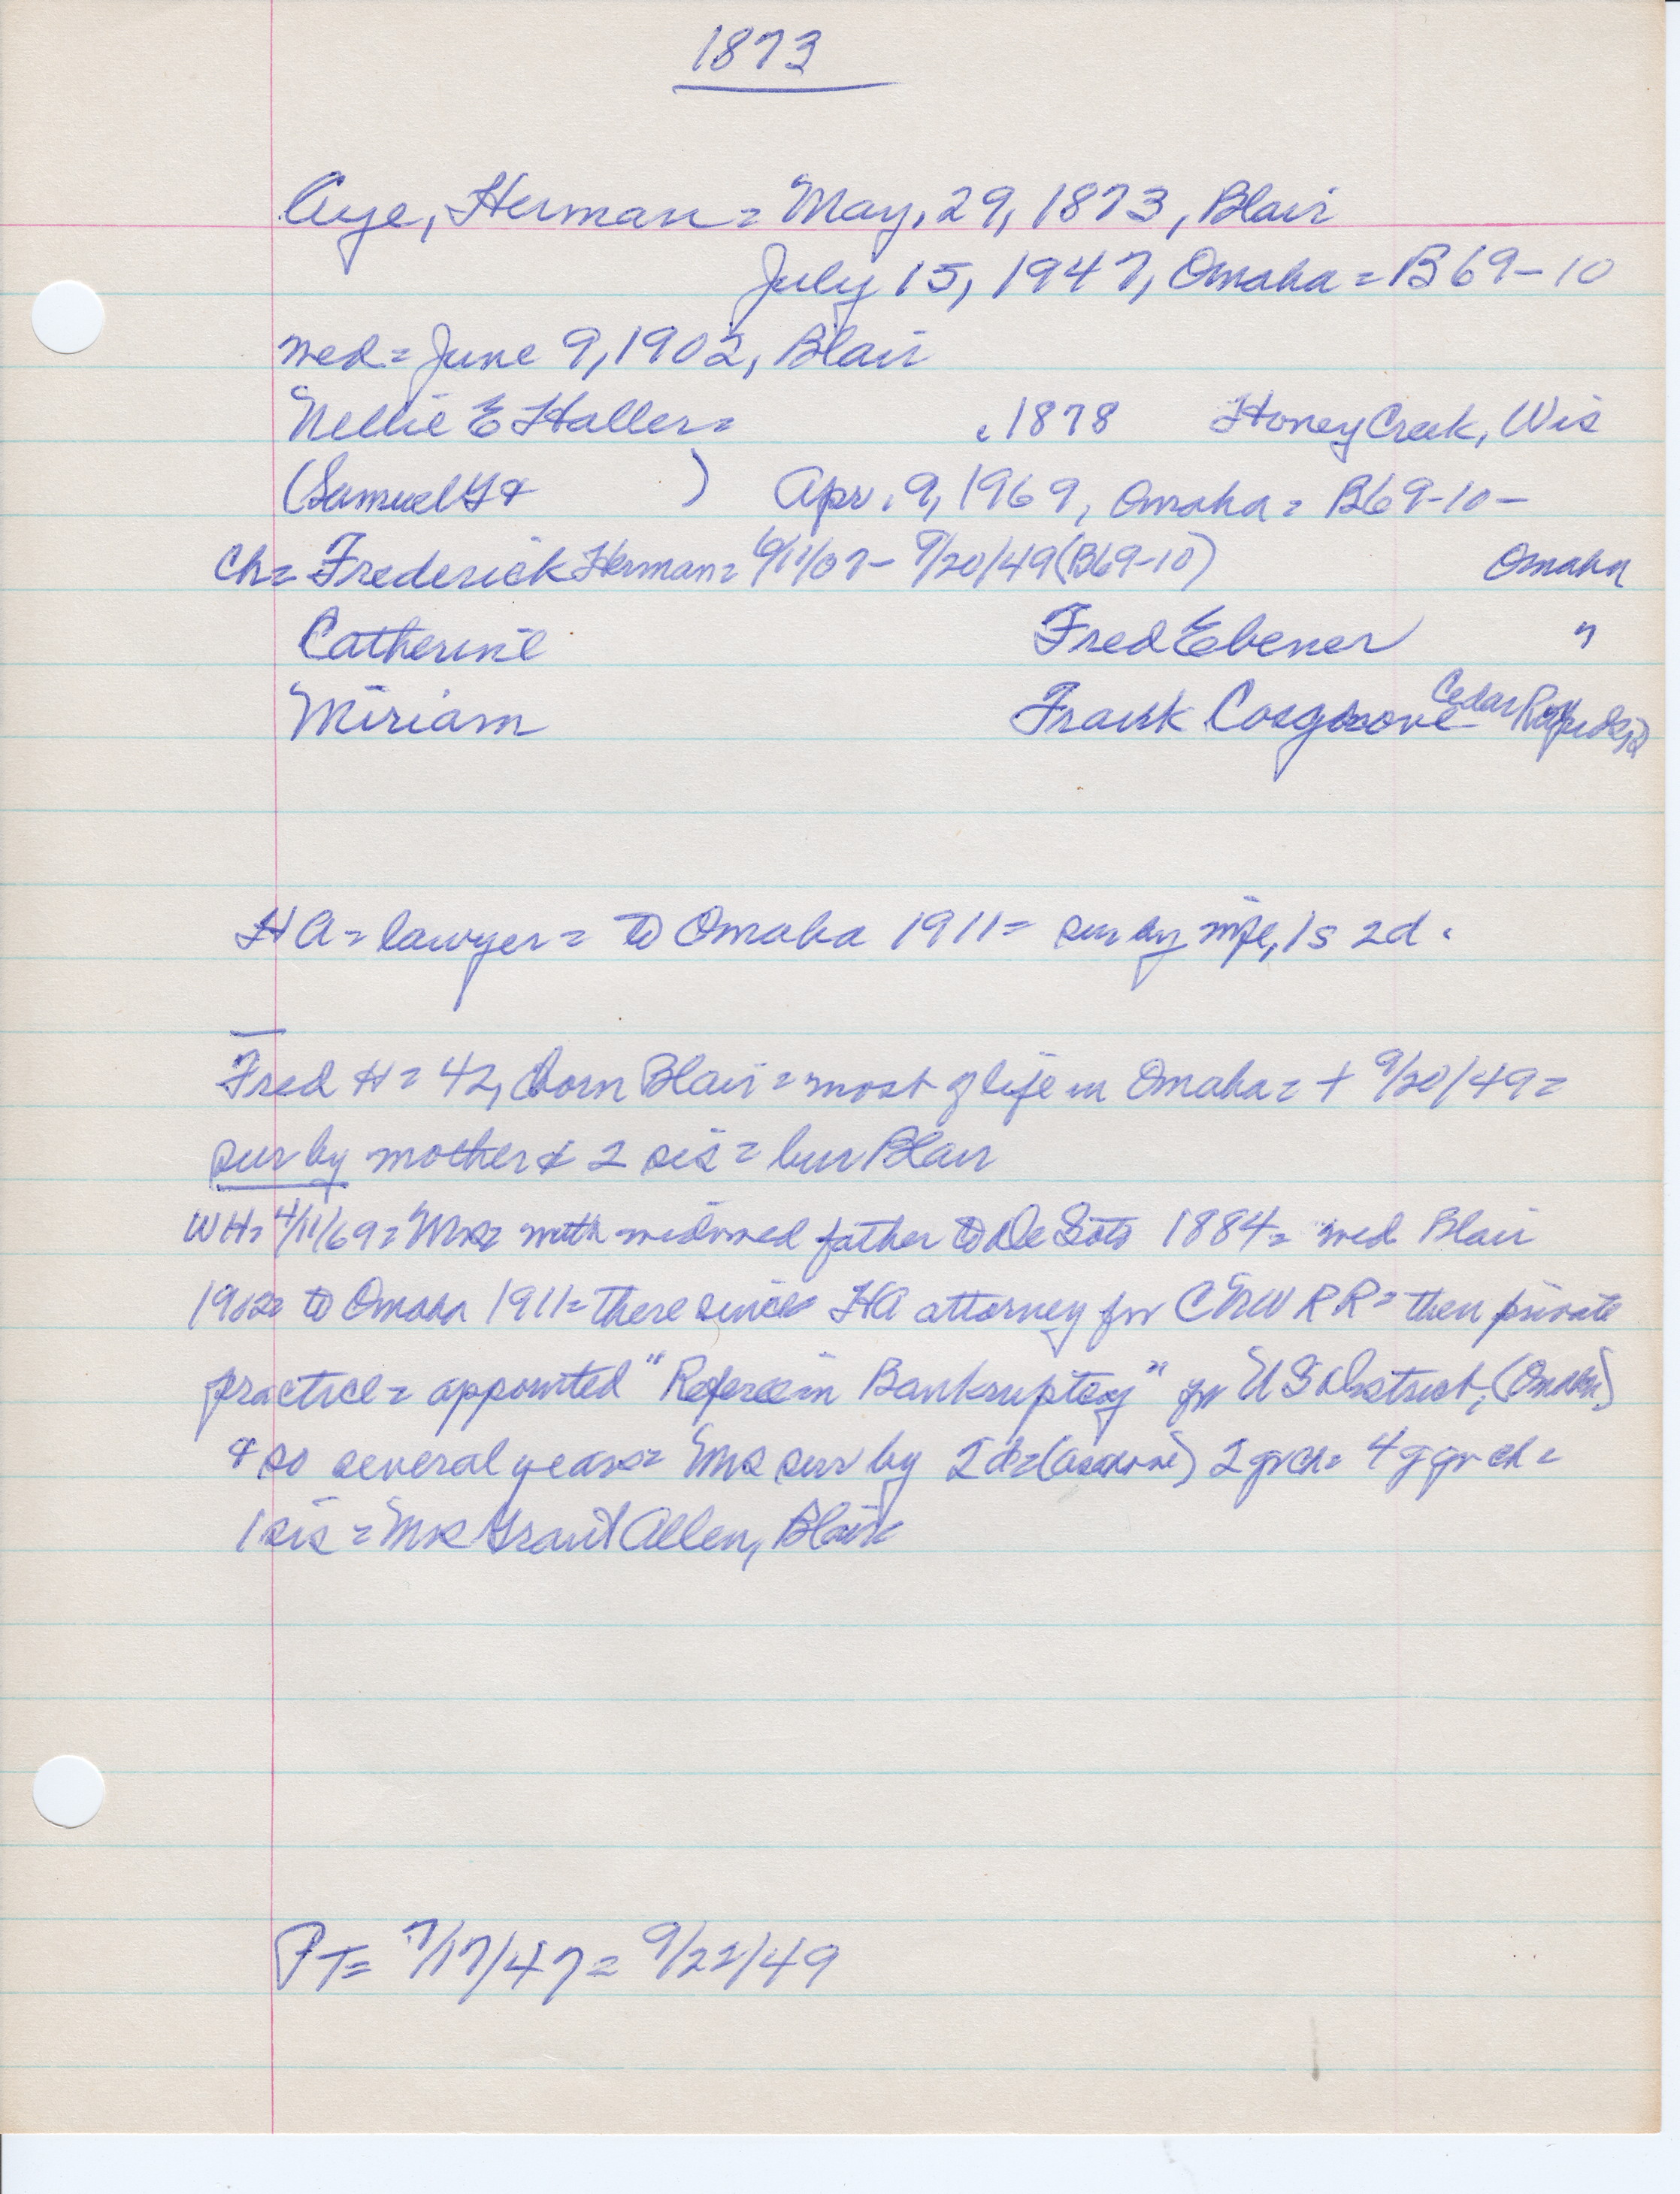 1873
Aye, Herman = May, 29, 1873, Blair
July 15, 1947, Omaha = B69-10
wed = June 9, 1902, Blair
Nellie E Haller = c. 1878 Honey Creek, Wis
(Samuel G & ) Apr. 9, 1969, Omaha = B69-10-
Ch = Frederick Herman = 6/11/07 - 9/20/49 (B69-10) Omaha
Catherine Fred Ebener "
Miriam Frank Cosgrove Cedar Rapids, Ia
HA = lawyer = to Omaha 1911 = sur by wife, 1s 2d.
Fred H = 42, born Blair = most of life in Omaha = + 9/20/49 =
sur by mother & 2 sis = bur Blair
WH = 4/11/69 = Mrs with widowed father to De Soto 1884 = wed Blair
1902 = to Omaha 1911 = there since HA attorney for C & NW RR = then private
practice = appointed "Referee in Bankruptcy" for US District, (Omaha)
& so several years = Mrs sur by 2 d = (as above) 2 gr ch = 4 g gr ch =
1 sis = Mrs Grant Allen, Blair
PT = 7/17/47 = 9/22/49